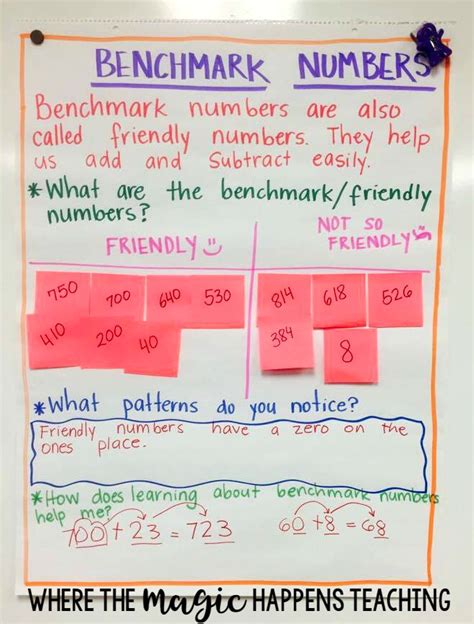 BENCHMARK NUMBERS
Benchmark numbers are also
called friendly numbers. They help
us add and subtract easily.
*What are the benchmark/friendly
numbers?
FRIENDLY
NOT SO
FRIENDLY
750 700 640 530
410 200 40
814 618 526
384 8
*What patterns do you notice?
Friendly numbers have a zero on the
ones place.
*How does learning about benchmark numbers
help me?
700 + 23 = 723
60 + 8 = 68
WHERE THE magic HAPPENS TEACHING